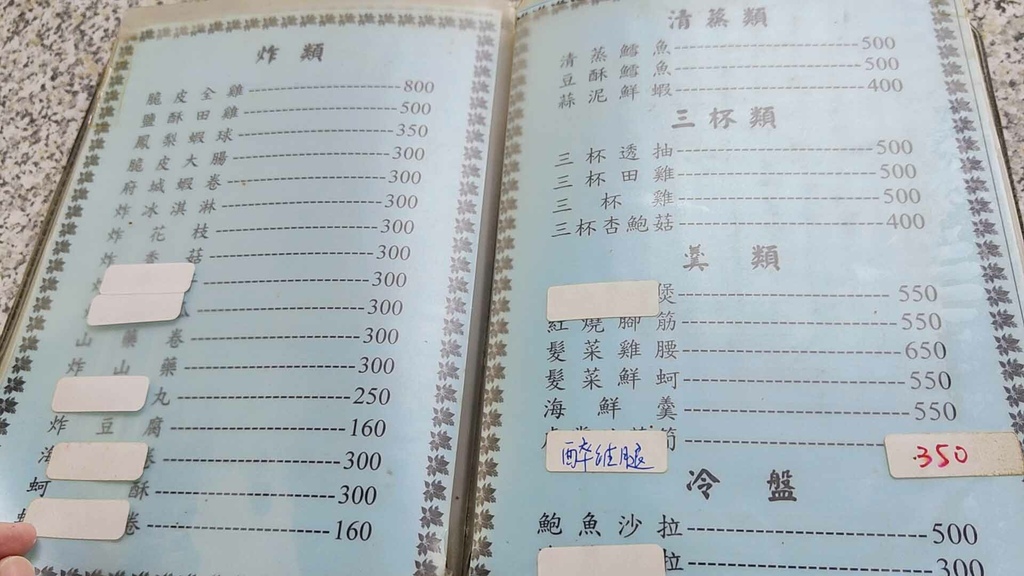 炸類
脆皮全雞 800
鹽酥田雞 500
鳳梨蝦球 350
脆皮大腸 300
府城蝦卷 300
炸冰淇淋 300
炸花枝 300
炸香菇 300
300
300
山藥卷 300
炸山藥 300
丸 250
炸豆腐 160
卷 300
蚵酥 300
卷 160
清蒸類
清蒸鱈魚 500
豆酥鱈魚 500
蒜泥鮮蝦 400
三杯類
三杯透抽 500
三杯田雞 500
三杯雞 500
三杯杏鮑菇 400
羹類
煲 550
紅燒腳筋 550
髮菜雞腰 650
髮菜鮮蚵 550
海鮮羹 550
醉雞腿 350
冷盤
鮑魚沙拉 500
拉 300